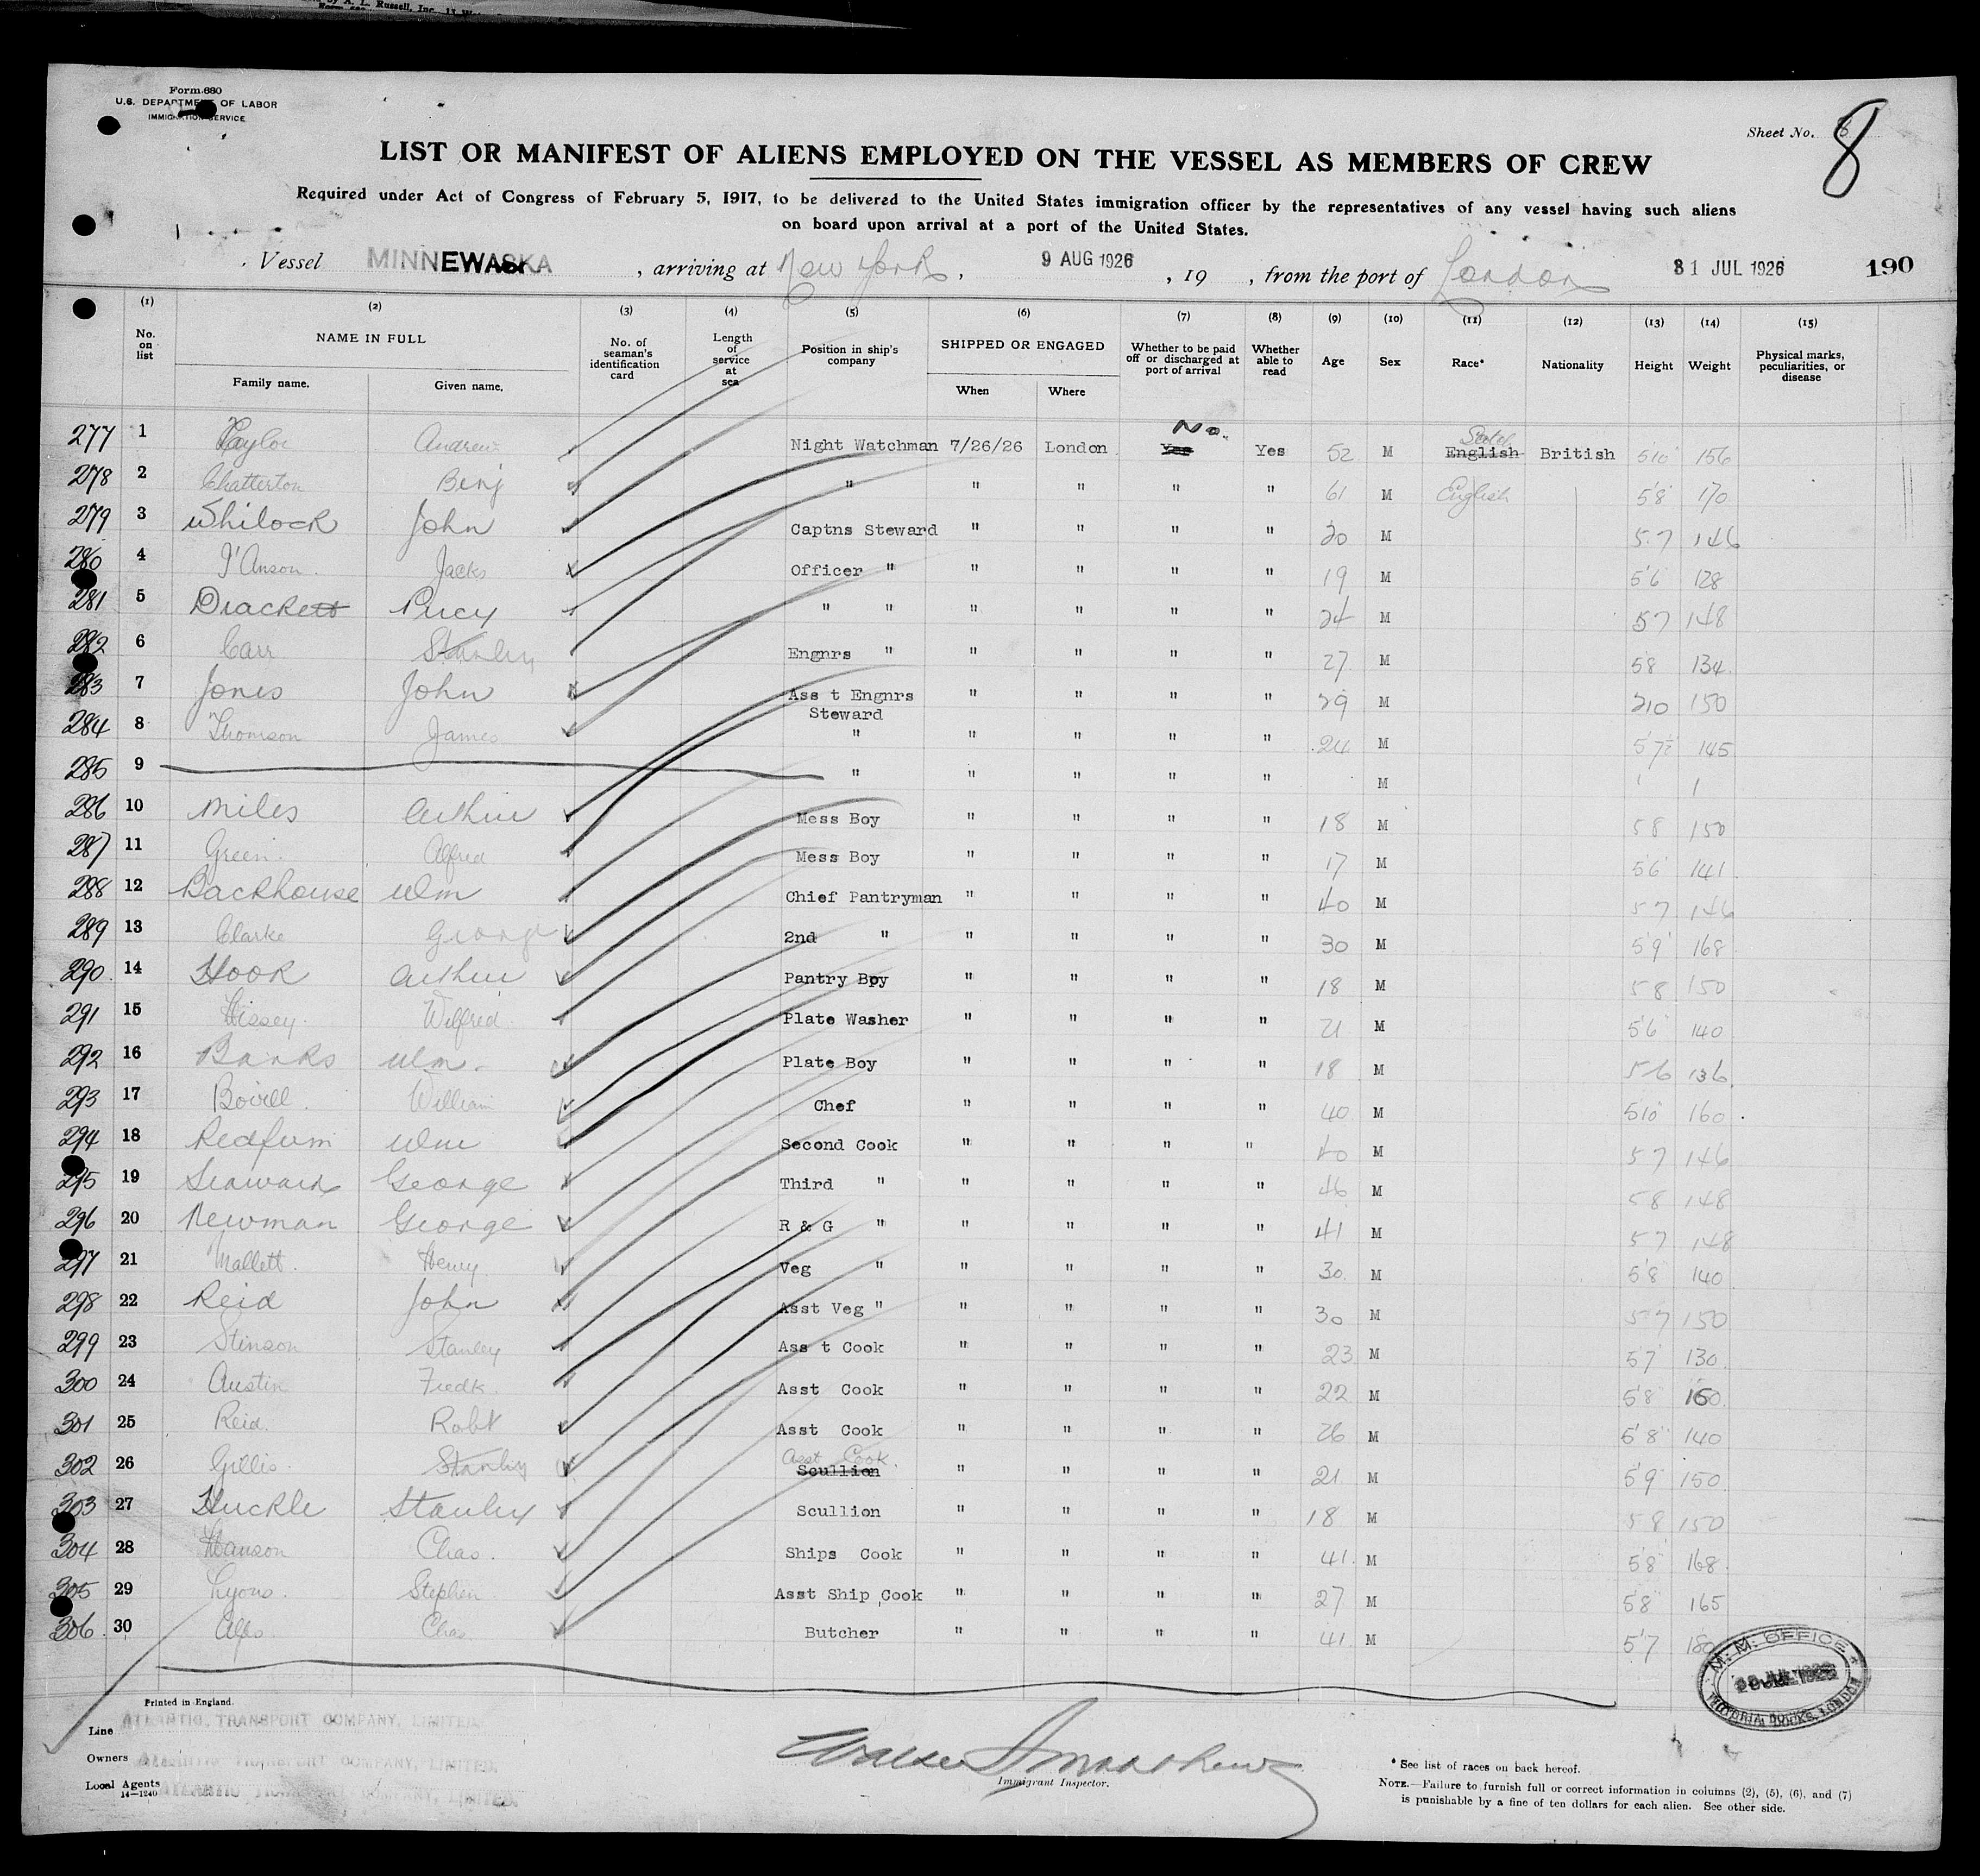 by A. L. Russell, Inc.
Form 680
U.S. DEPARTMENT OF LABOR
IMMIGRATION SERVICE
Sheet No. 8
LIST OR MANIFEST OF ALIENS EMPLOYED ON THE VESSEL AS MEMBERS OF CREW
Required under Act of Congress of February 5, 1917, to be delivered to the United States immigration officer by the representatives of any vessel having such aliens
on board upon arrival at a port of the United States.
Vessel MINNEWASKA, arriving at New York, 9 AUG 1926, 19 , from the port of London 31 JUL 1926 190
(1) No. on list (2) NAME IN FULL Family name. Given name. (3) No. of seaman's identification card (4) Length of service at sea (5) Position in ship's company (6) SHIPPED OR ENGAGED When Where (7) Whether to be paid off or discharged at port of arrival (8) Whether able to read (9) Age (10) Sex (11) Race* (12) Nationality (13) Height (14) Weight (15) Physical marks, peculiarities, or disease
277 1 Taylor Andrew Night Watchman 7/26/26 London Yes No. Yes 52 M English Scotch British 5'10" 156
278 2 Chatterton Benj " " " " " 61 M English 5'8 170
279 3 Whilock John Captns Steward " " " " 20 M 5.7 146
280 4 I'Anson Jacks Officer " " " " " 19 M 5'6 128
281 5 Drackett Percy " " " " " " 24 M 5 7 148
282 6 Carr Stanley Engnrs " " " " " 27 M 5 8 134
283 7 Jones John Ass t Engnrs Steward " " " " 29 M 150
284 8 Thomson James " " " " " 24 M 5'7½ 145
285 9 " " " " " M
286 10 Miles Arthur Mess Boy " " " " 18 M 5 8 150
287 11 Green Alfred Mess Boy " " " " 17 M 5'6 141
288 12 Backhouse Wm Chief Pantryman " " " " 40 M 5 7 146
289 13 Clarke George 2nd " " " " " 30 M 5'9" 168
290 14 Hook Arthur Pantry Boy " " " " 18 M 5 8 150
291 15 Hissey Wilfred Plate Washer " " " " 21 M 5'6" 140
292 16 Banks Wm. Plate Boy " " " " 18 M 5 6 136
293 17 Bovill William Chef " " " " 40 M 5'10" 160
294 18 Wm Second Cook " " " " 40 M 5 7 146
295 19 Seaward George Third " " " " " 46 M 5 8 148
296 20 Newman George R & G " " " " " 41 M 5 7 148
297 21 Mallett Henry Veg " " " " " 30 M 5'8 140
298 22 Reid John Asst Veg " " " " " 30 M 5 7 150
299 23 Stinson Stanley Ass t Cook " " " " 23 M 5 7 130
300 24 Austin Fredk Asst Cook " " " " 22 M 5'8" 160
301 25 Reid Robt Asst Cook " " " " 26 M 5'8" 140
302 26 Gillis Stanley Scullion Asst Cook " " " " 21 M 5'9 150
303 27 Huckle Stanley Scullion " " " " 18 M 5 8 150
304 28 Hanson Chas. Ships Cook " " " " 41 M 5'8" 168
305 29 Lyons Stephen Asst Ship Cook " " " " 27 M 5 8 165
306 30 Chas Butcher " " " " 41 M 5'7 180
Printed in England.
Line ATLANTIC TRANSPORT COMPANY, LIMITED.
Owners ATLANTIC TRANSPORT COMPANY, LIMITED.
Local Agents ATLANTIC TRANSPORT COMPANY, LIMITED.
14—1240
Immigrant Inspector.
M. M. OFFICE
VICTORIA DOCKS, LONDON
* See list of races on back hereof.
NOTE.—Failure to furnish full or correct information in columns (2), (5), (6), and (7)
is punishable by a fine of ten dollars for each alien. See other side.